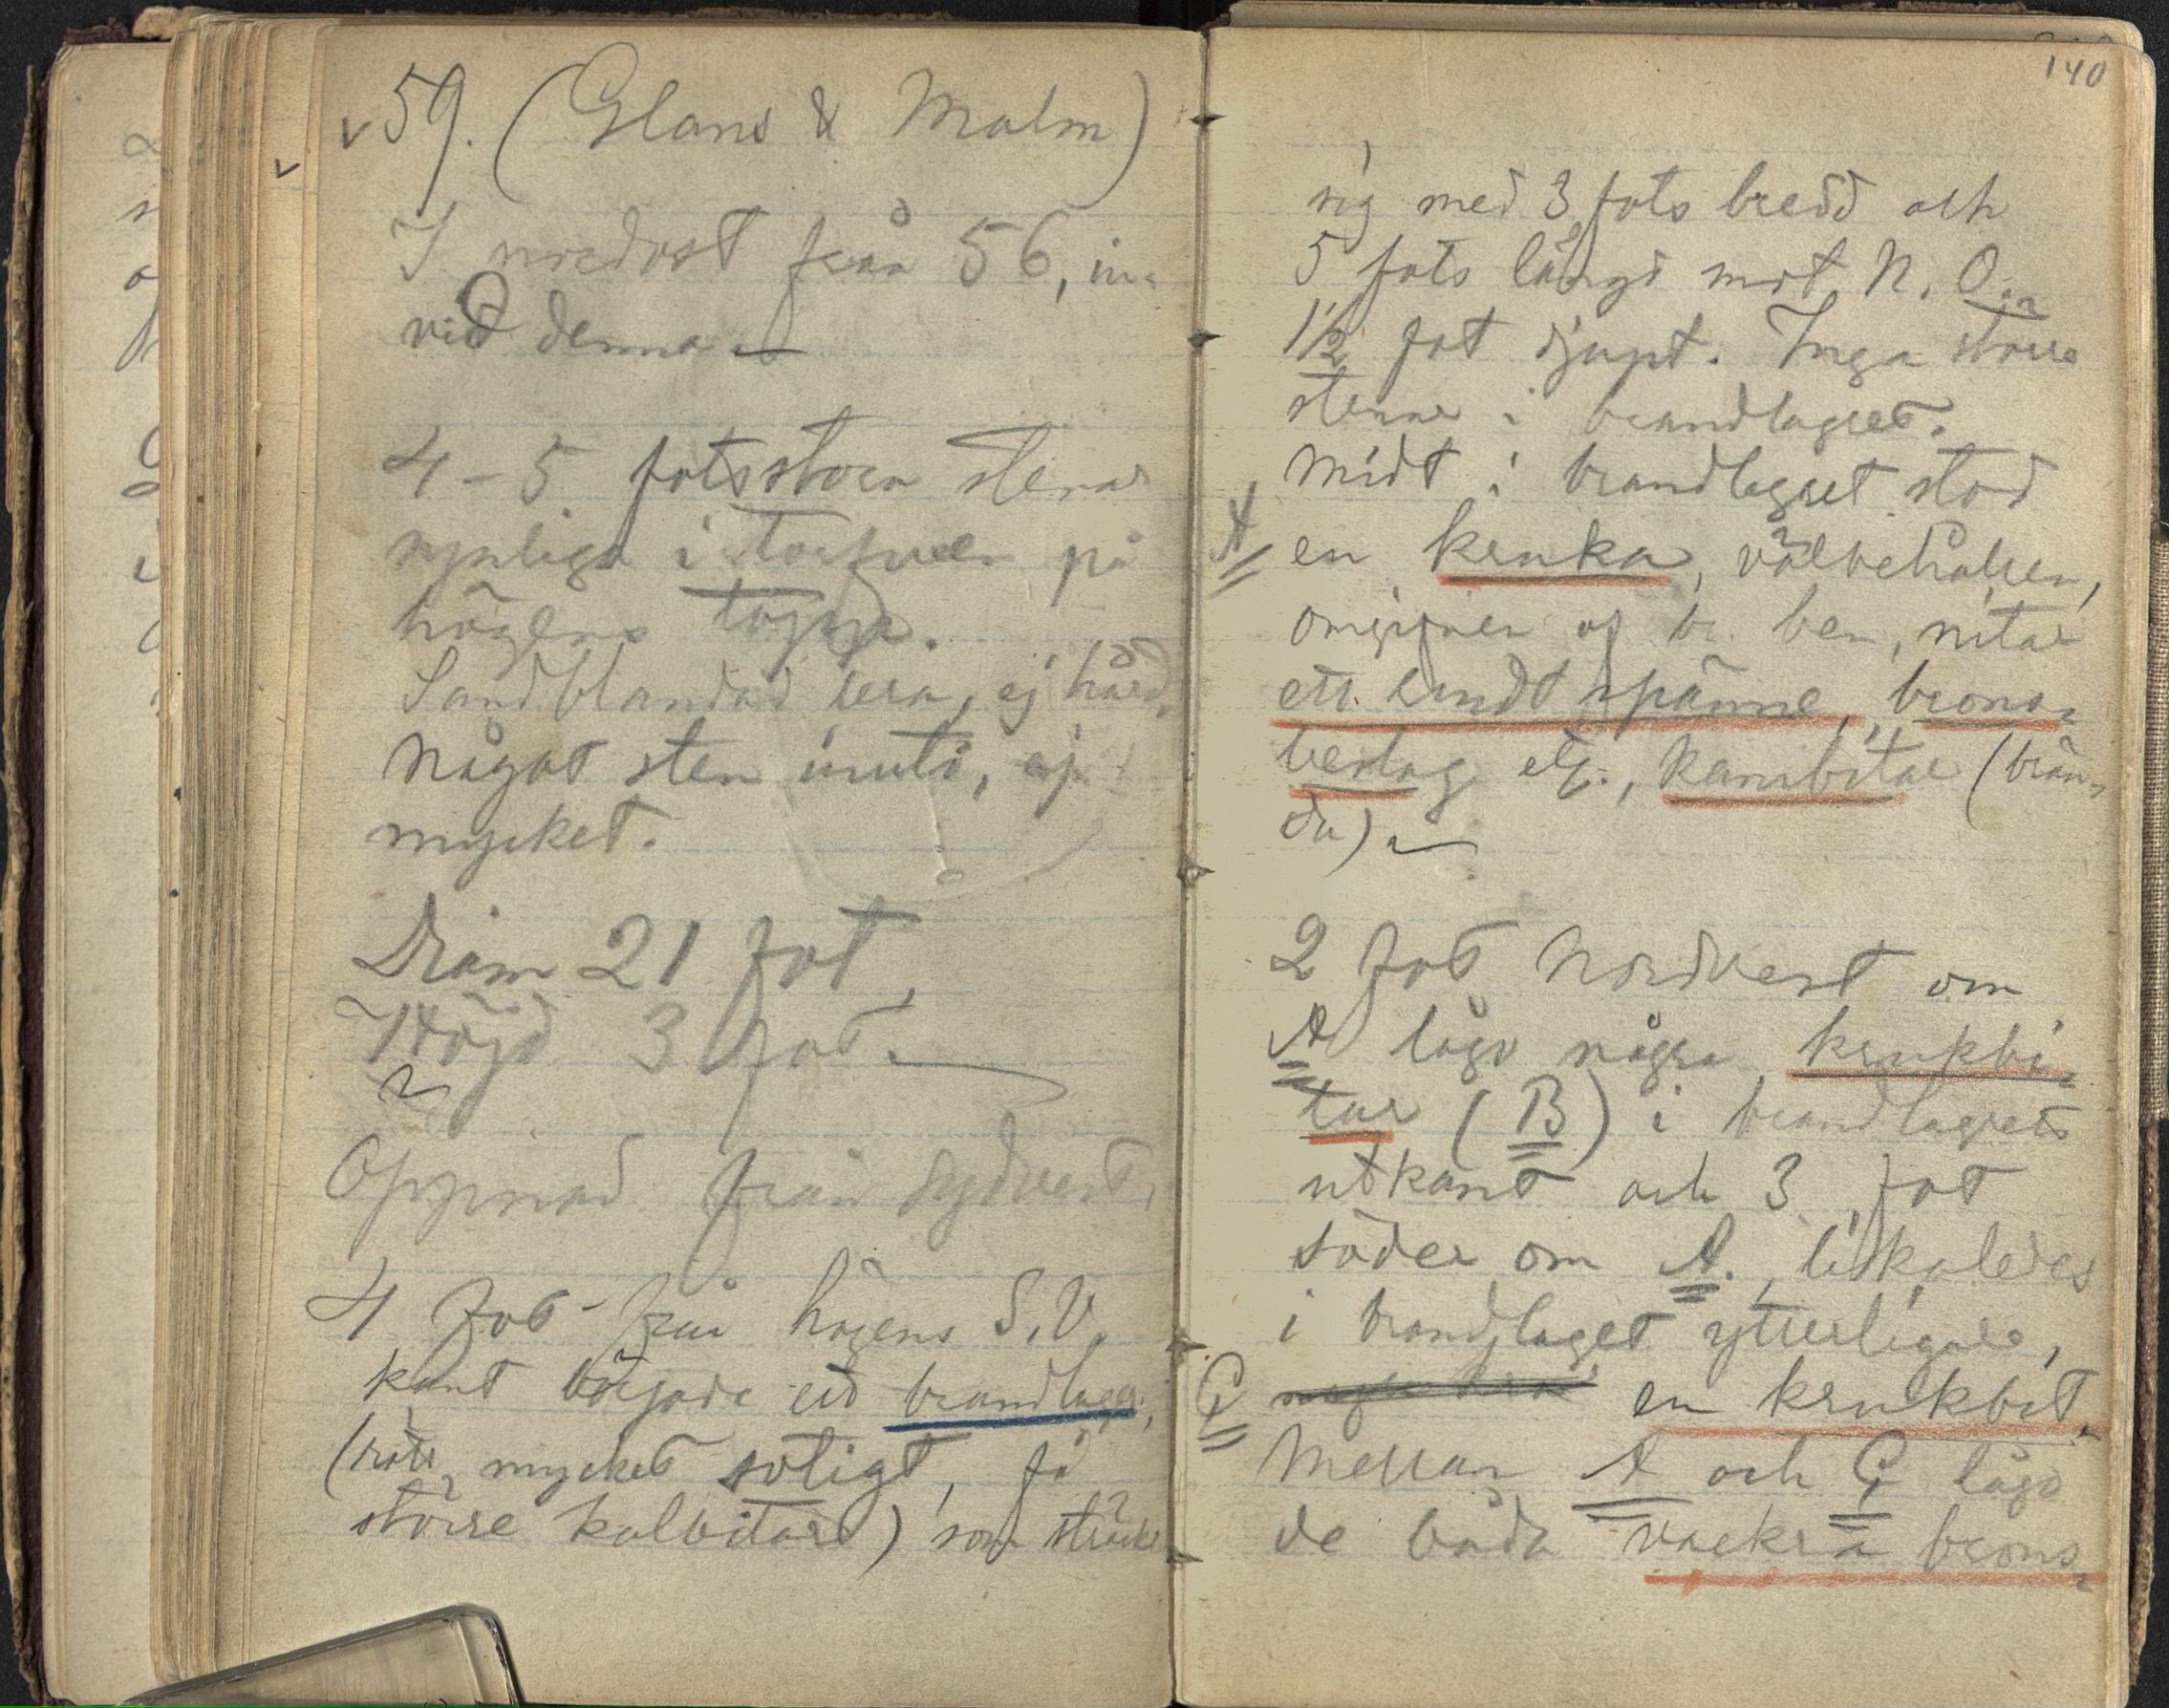 59. (Glans & Malm)
I nordost från 56, in-
vid denna.
4-5 fotsstora stenar
synliga i torfven på
högens topp.
Sandblandad jord, ej hård.
Något sten inuti, ej
mycket.
Diam 21 fot,
Höjd 3 fot.
Öppnad från sydvest.
4 fot från högens S.V.
kant började ett brandlager,
(mycket sotigt, få
större kolbitar) som sträckte
140
sig med 3 fots bredd och
5 fots längd mot N.O.
1 1/2 fot djupt. Inga större
stenar i brandlagret.
Midt i brandlagret stod
A en kruka, välbehållen,
omgifven af br. ben, nitar
ett rundt spänne, brons-
beslag etc., kambitar (brän-
da).
2 fot nordvest om
A lågo några krukbi-
tar (B) i brandlagrets
utkant och 3 fot
söder om A, likaledes
i brandlaget ytterligare,
C en krukbit.
Mellan A och C lågo
de båda vackra brons-